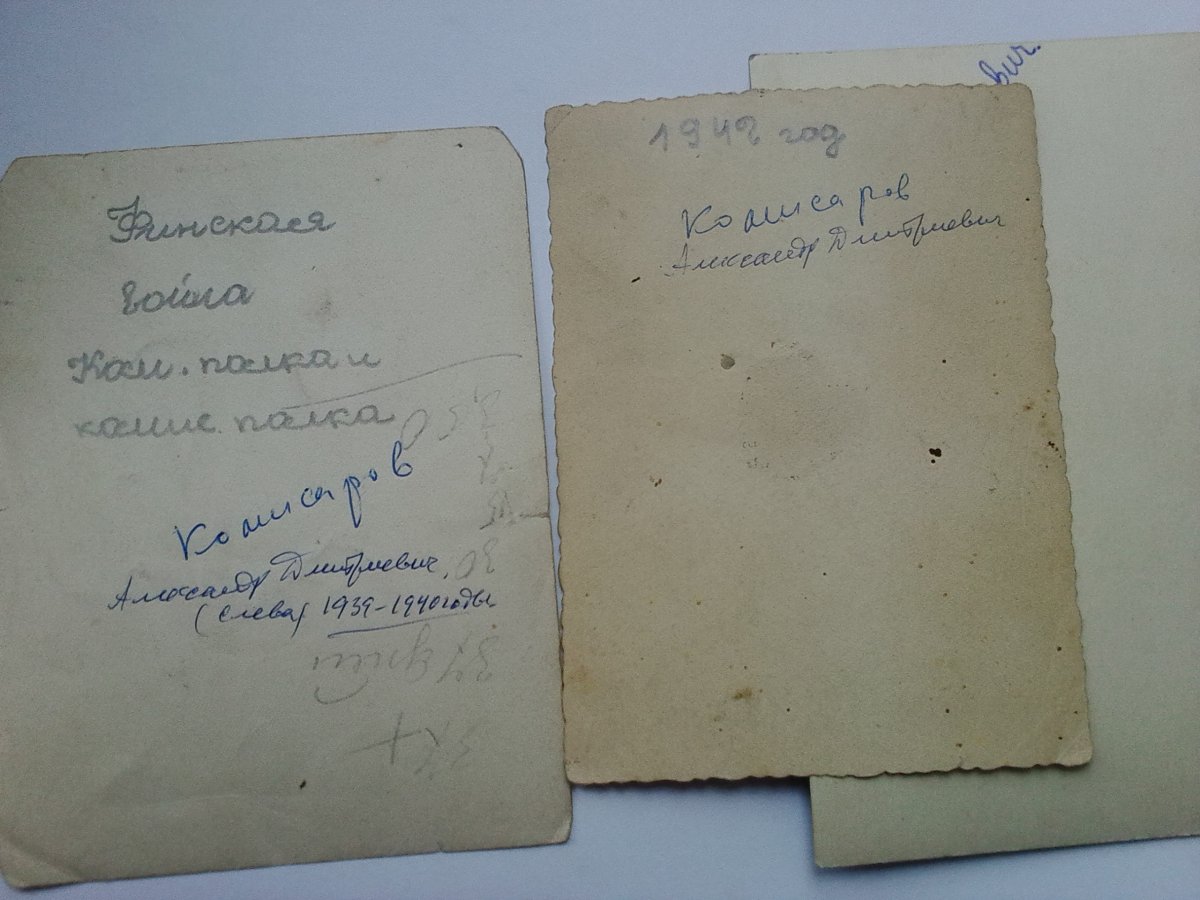 Финская
война
Ком. полка и
комис. полка
Комисаров
Александр Дмитриевич
(слева) 1939-1940 годы.
50
30
37 дней
1942 год
Комисаров
Александр Дмитриевич
вич.